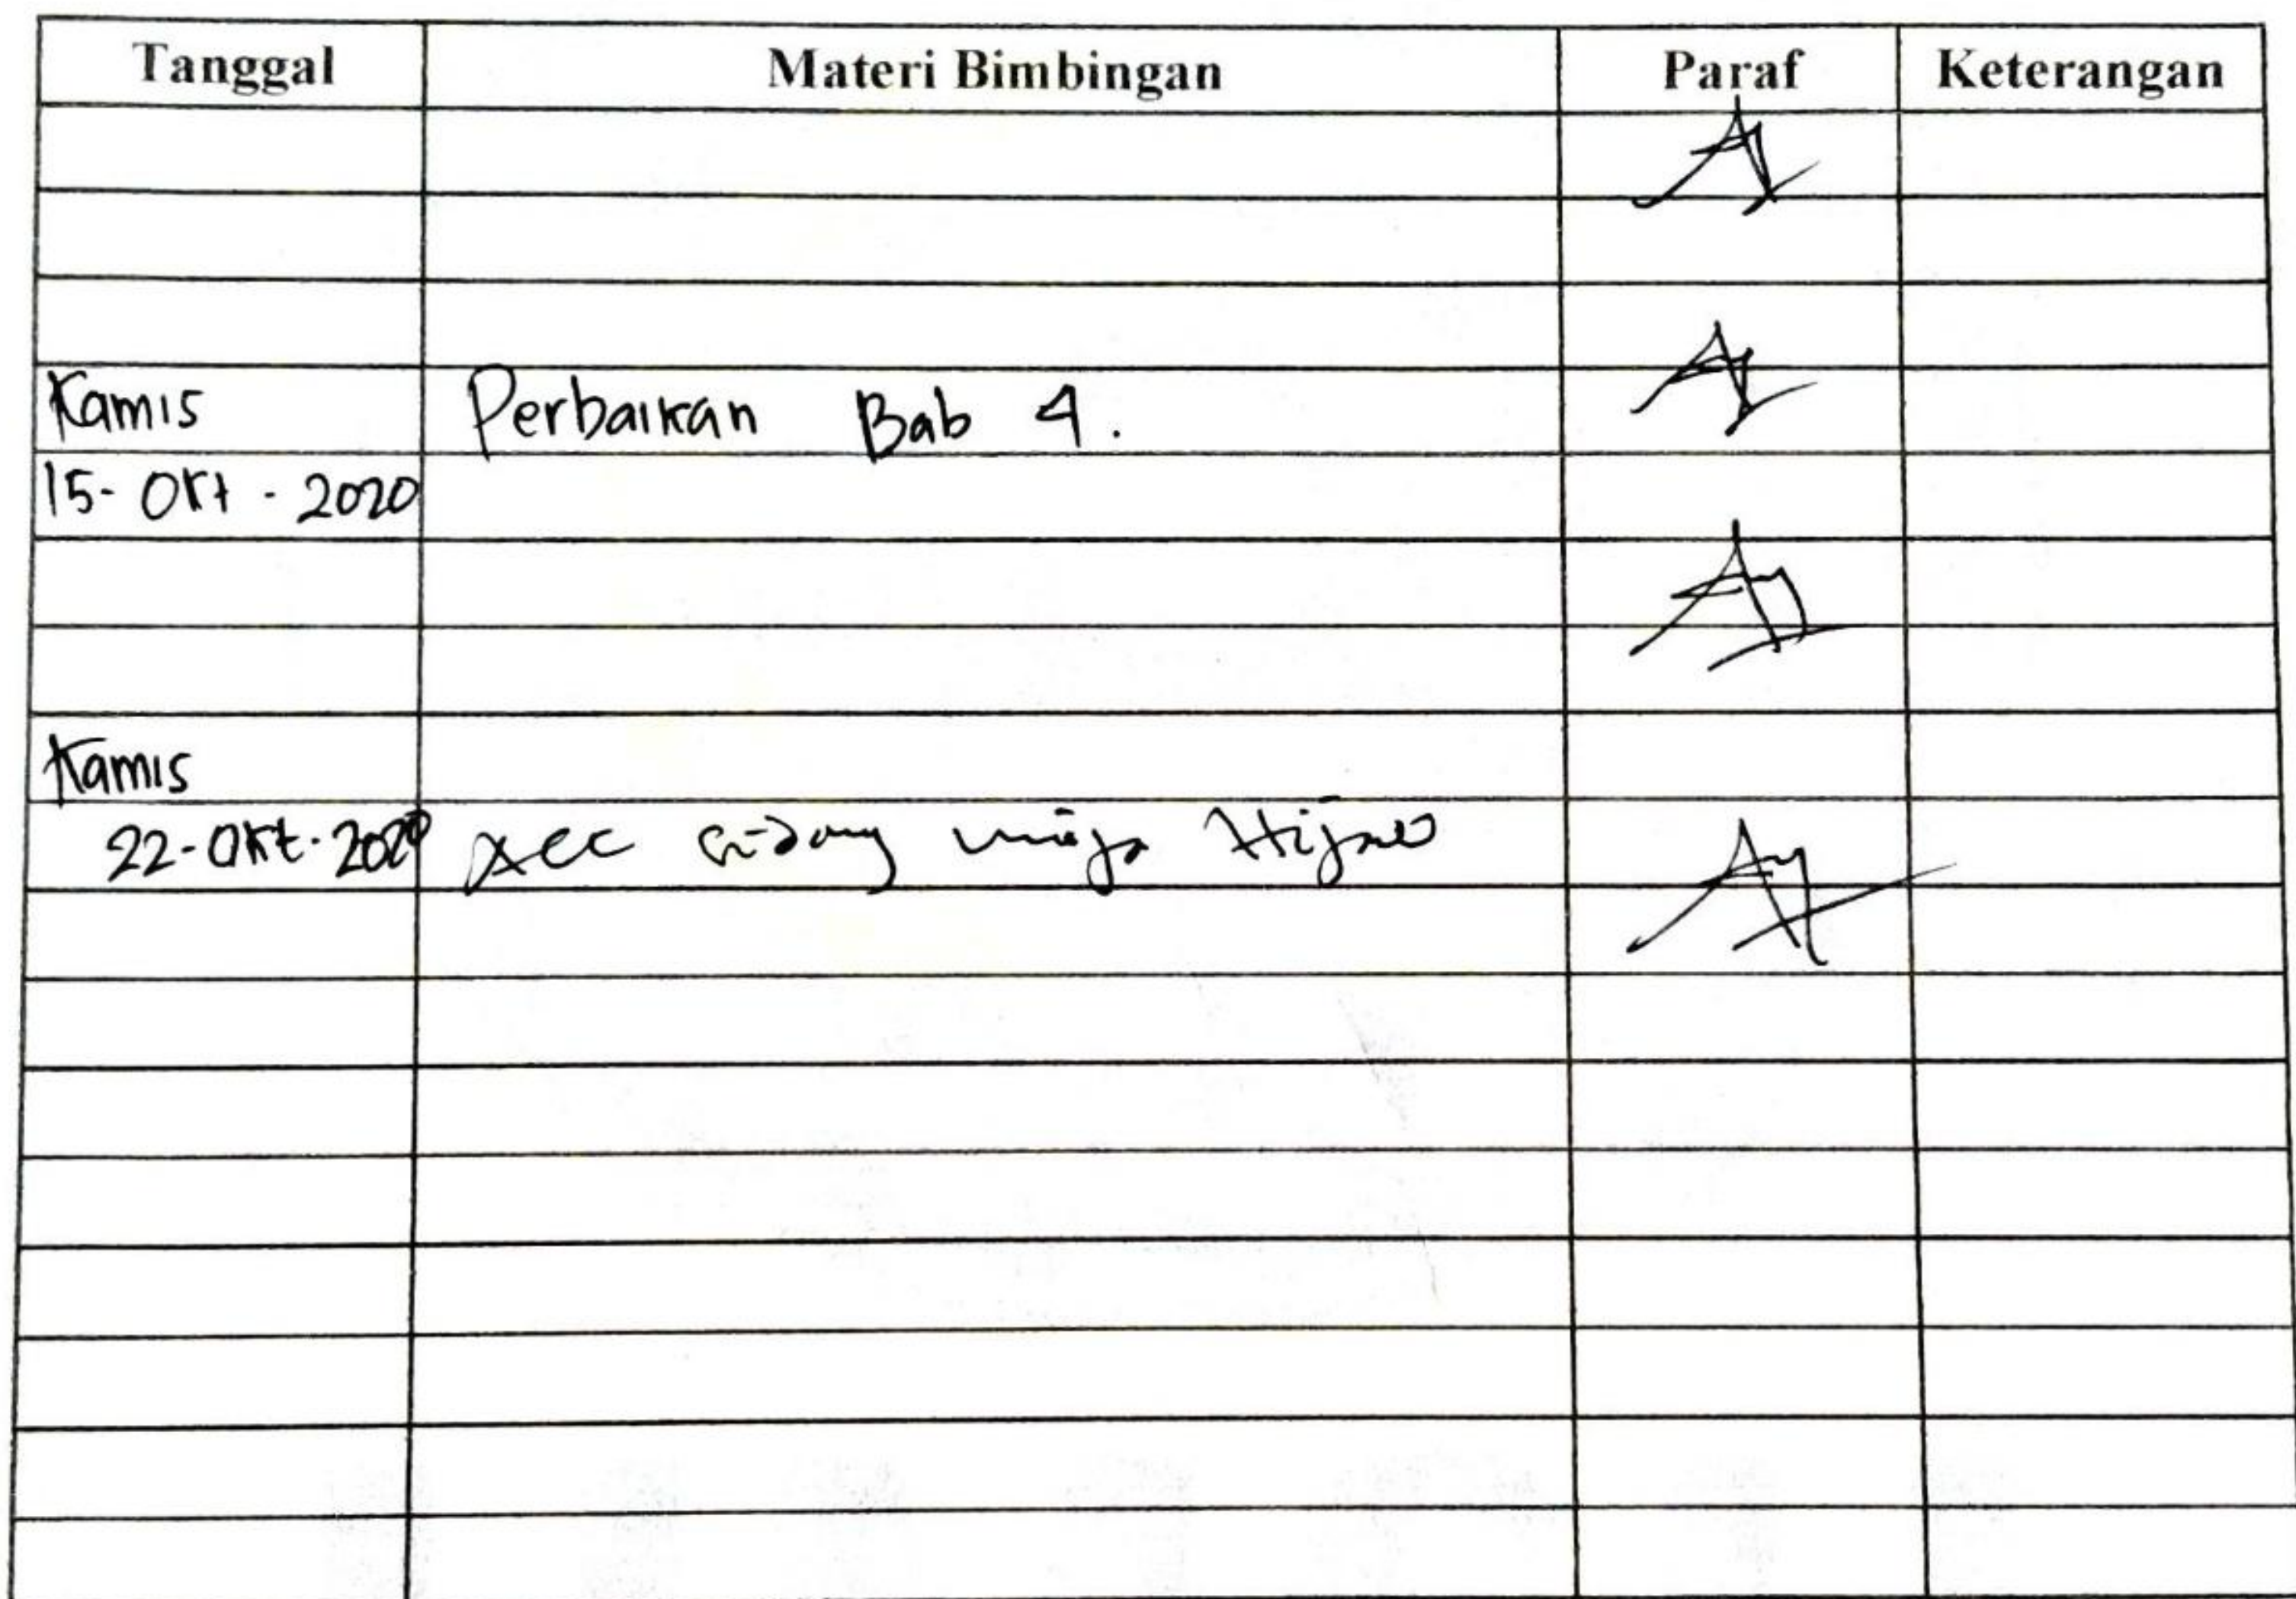 Tanggal Materi Bimbingan Paraf Keterangan
Kamis Perbaikan Bab 4.
15-Okt-2020
Kamis
22-Okt-2020 Acc sidang